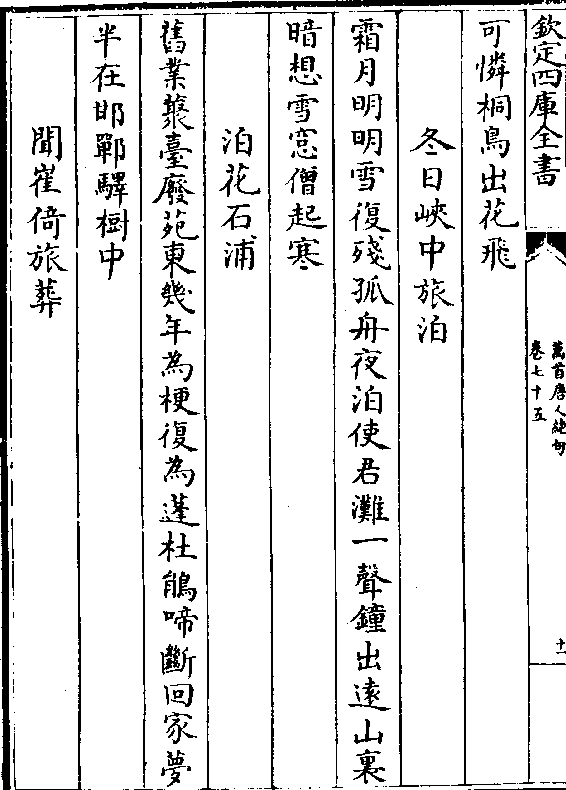 欽定四庫全書
萬首唐人絶句
卷七十五
十一
可憐桐鳥出花飛
冬日峽中旅泊
霜月明明雪復殘孤舟夜泊使君灘一聲鐘出逺山裏
暗想雪窻僧起寒
泊花石浦
舊業叢臺廢苑東幾年為梗復為蓬杜鵑啼斷回家夢
半在邯鄲驛樹中
聞崔倚旅葬